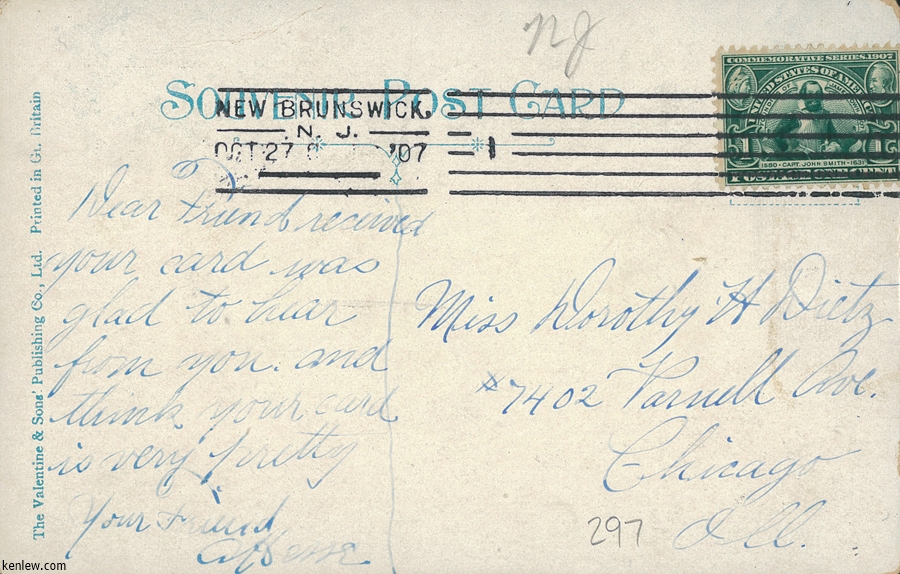 NJ
SOUVENIR POST CARD
NEW BRUNSWICK,
N. J.
OCT 27
'07
1
COMMEMORATIVE SERIES, 1907
UNITED STATES OF AMERICA
1580 · CAPT. JOHN SMITH · 1631
POSTAGE ONE CENT
The Valentine & Sons' Publishing Co., Ltd. Printed in Gt. Britain
Dear Friend received
your card was
glad to hear
from you. and
think your card
is very pretty
Your Friend
Miss Dorothy H Dietz
#7402 Parnell Ave.
Chicago
Ill.
297
kenlew.com